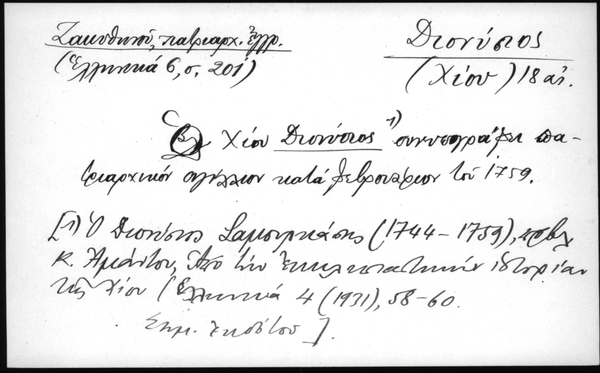 Ζακυθηνού, πατριαρχ. έγγρ.
(Ελληνικά 6, σ. 201)
Διονύσιος
(Χίου) 18 αἰ.
Χίου Διονύσιος ¹) συνυπογράφει πα-
τριαρχικόν σιγίλλιον κατά Φεβρουάριον τοῦ 1759.
[1) Ὁ Διονύσιος (1744-1759), πρβλ
Κ. Ἀμάντου, Ἀπό τήν ἐκκλησιαστικήν ἱστορίαν
τῆς Χίου (Ἑλληνικά 4 (1931), 58-60.
Σημ. ἐκδότου].